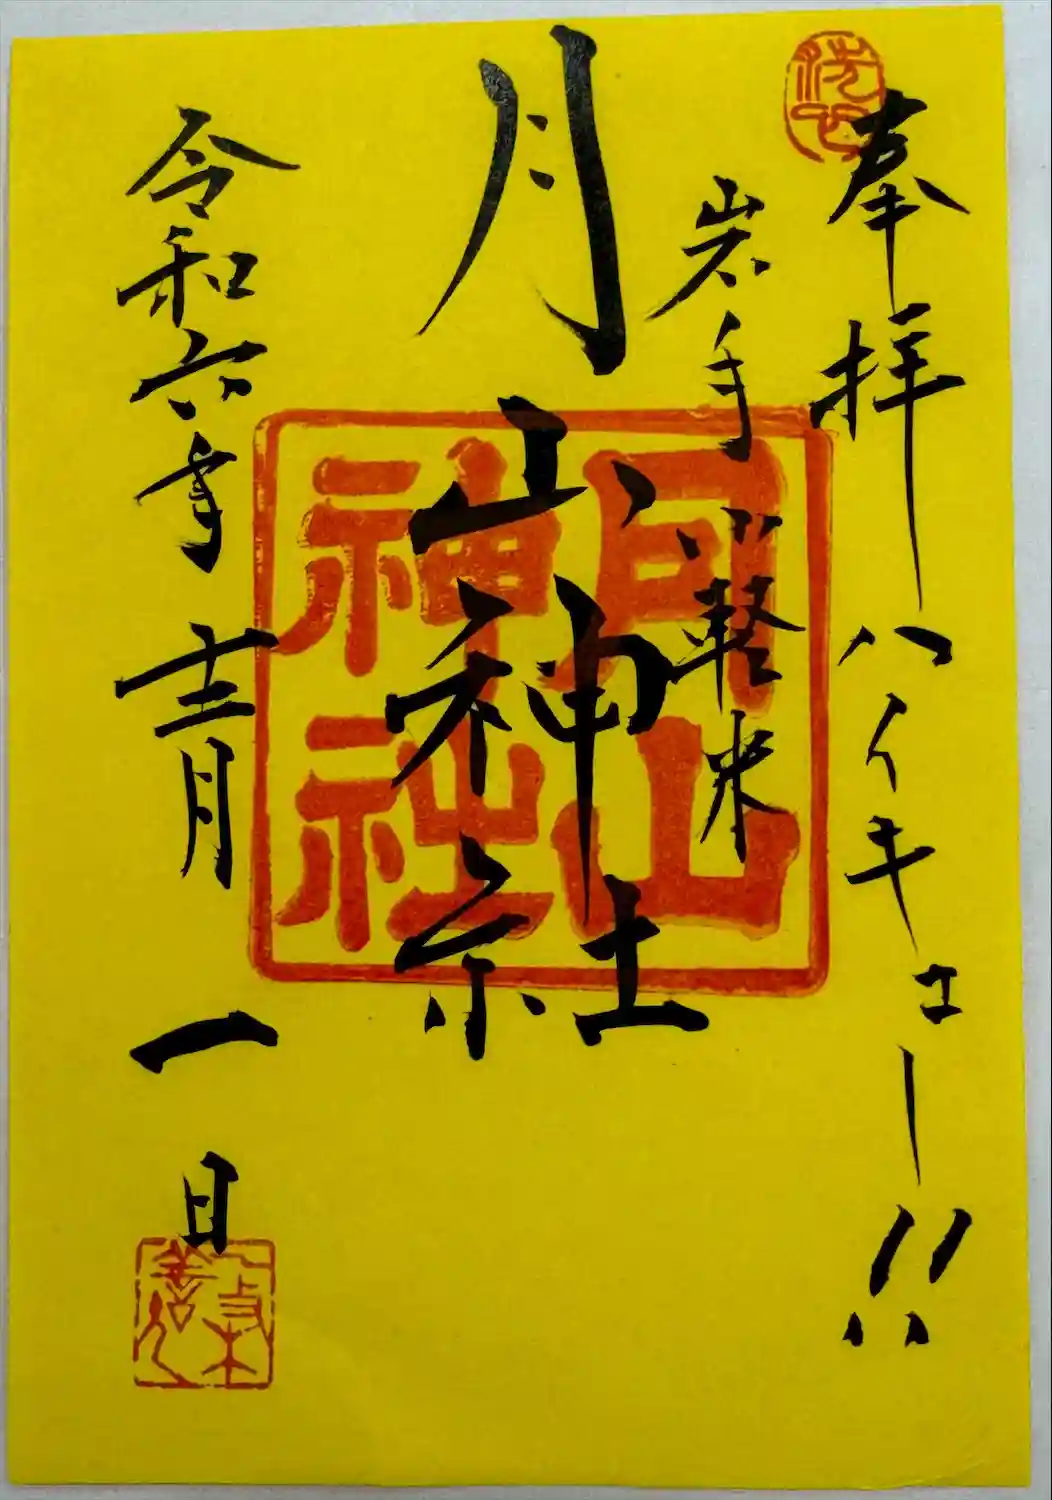 洗心
奉拝 ハイキュー!!
岩手 軽米
月山神社
月山
神社
令和六年 十二月 一日